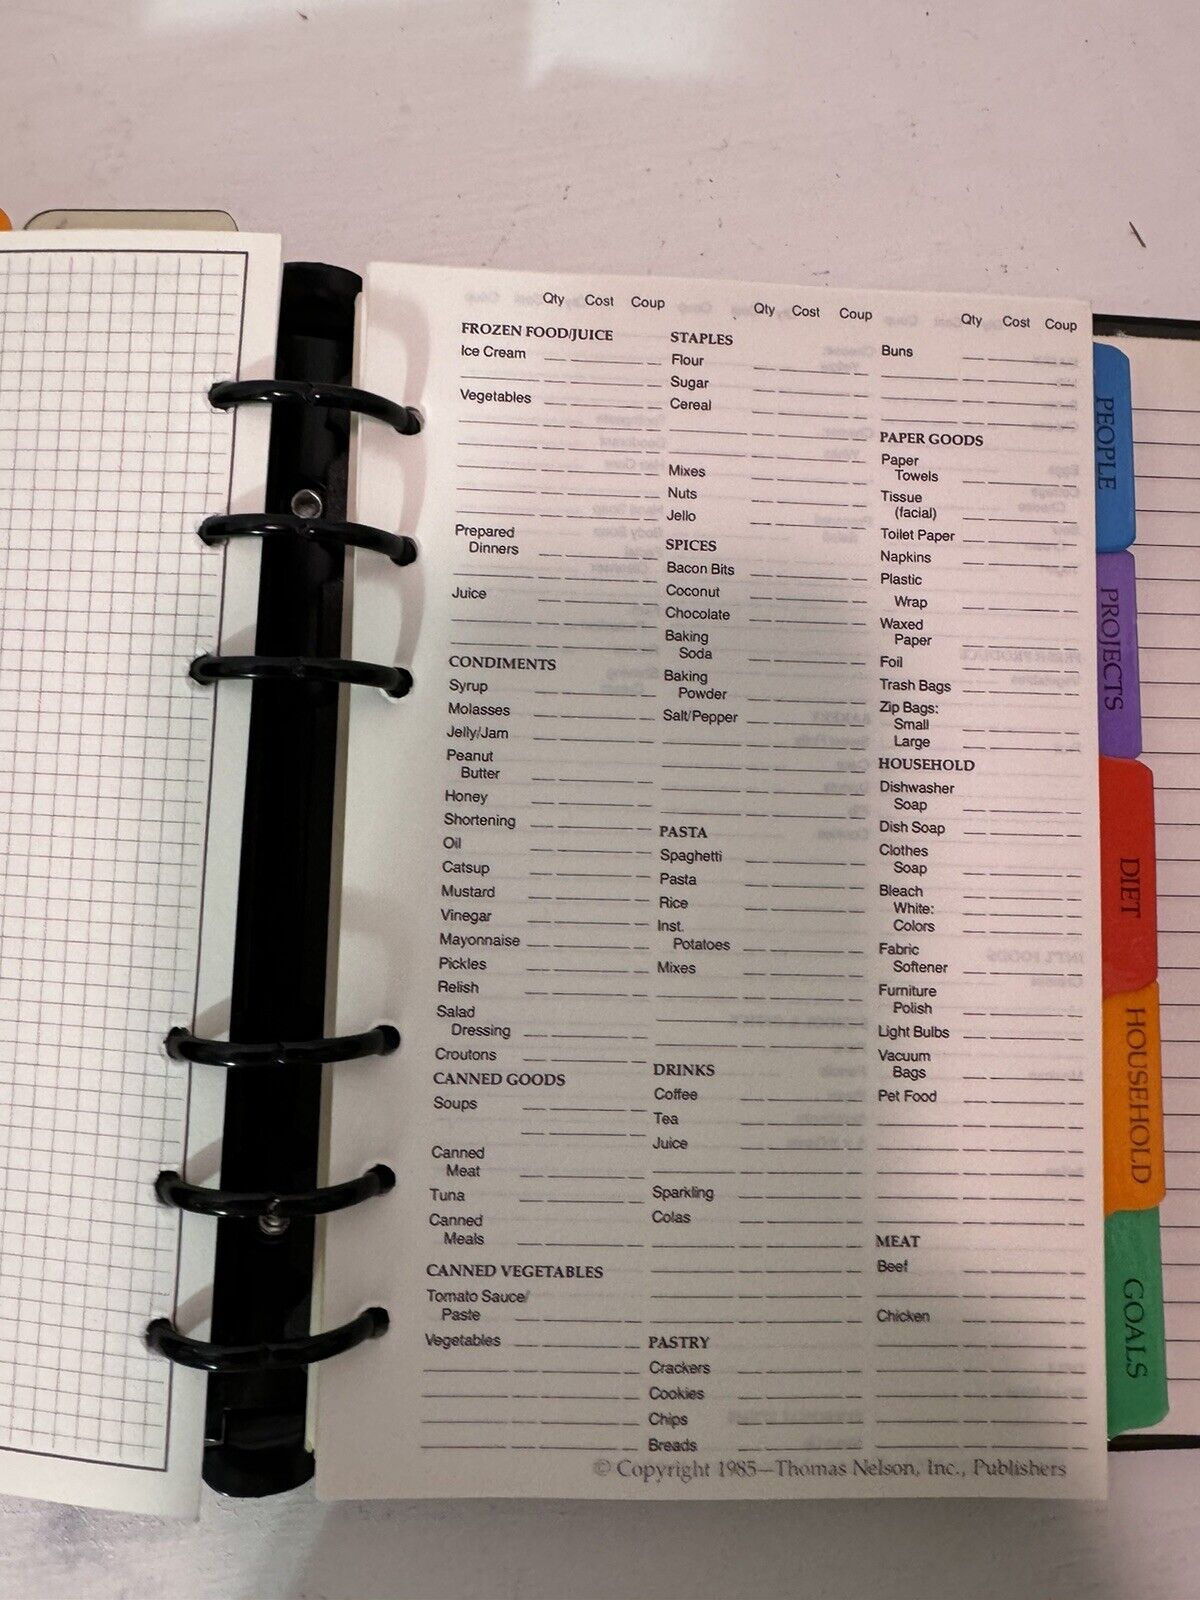 Qty Cost Coup
FROZEN FOOD/JUICE
Ice Cream
Vegetables
Prepared
Dinners
Juice
CONDIMENTS
Syrup
Molasses
Jelly/Jam
Peanut
Butter
Honey
Shortening
Oil
Catsup
Mustard
Vinegar
Mayonnaise
Pickles
Relish
Salad
Dressing
Croutons
CANNED GOODS
Soups
Canned
Meat
Tuna
Canned
Meals
CANNED VEGETABLES
Tomato Sauce/
Paste
Vegetables
Qty Cost Coup
STAPLES
Flour
Sugar
Cereal
Mixes
Nuts
Jello
SPICES
Bacon Bits
Coconut
Chocolate
Baking
Soda
Baking
Powder
Salt/Pepper
PASTA
Spaghetti
Pasta
Rice
Inst.
Potatoes
Mixes
DRINKS
Coffee
Tea
Juice
Sparkling
Colas
PASTRY
Crackers
Cookies
Chips
Breads
Qty Cost Coup
Buns
PAPER GOODS
Paper
Towels
Tissue
(facial)
Toilet Paper
Napkins
Plastic
Wrap
Waxed
Paper
Foil
Trash Bags
Zip Bags:
Small
Large
HOUSEHOLD
Dishwasher
Soap
Dish Soap
Clothes
Soap
Bleach
White:
Colors
Fabric
Softener
Furniture
Polish
Light Bulbs
Vacuum
Bags
Pet Food
MEAT
Beef
Chicken
© Copyright 1985—Thomas Nelson, Inc., Publishers
PEOPLE
PROJECTS
DIET
HOUSEHOLD
GOALS